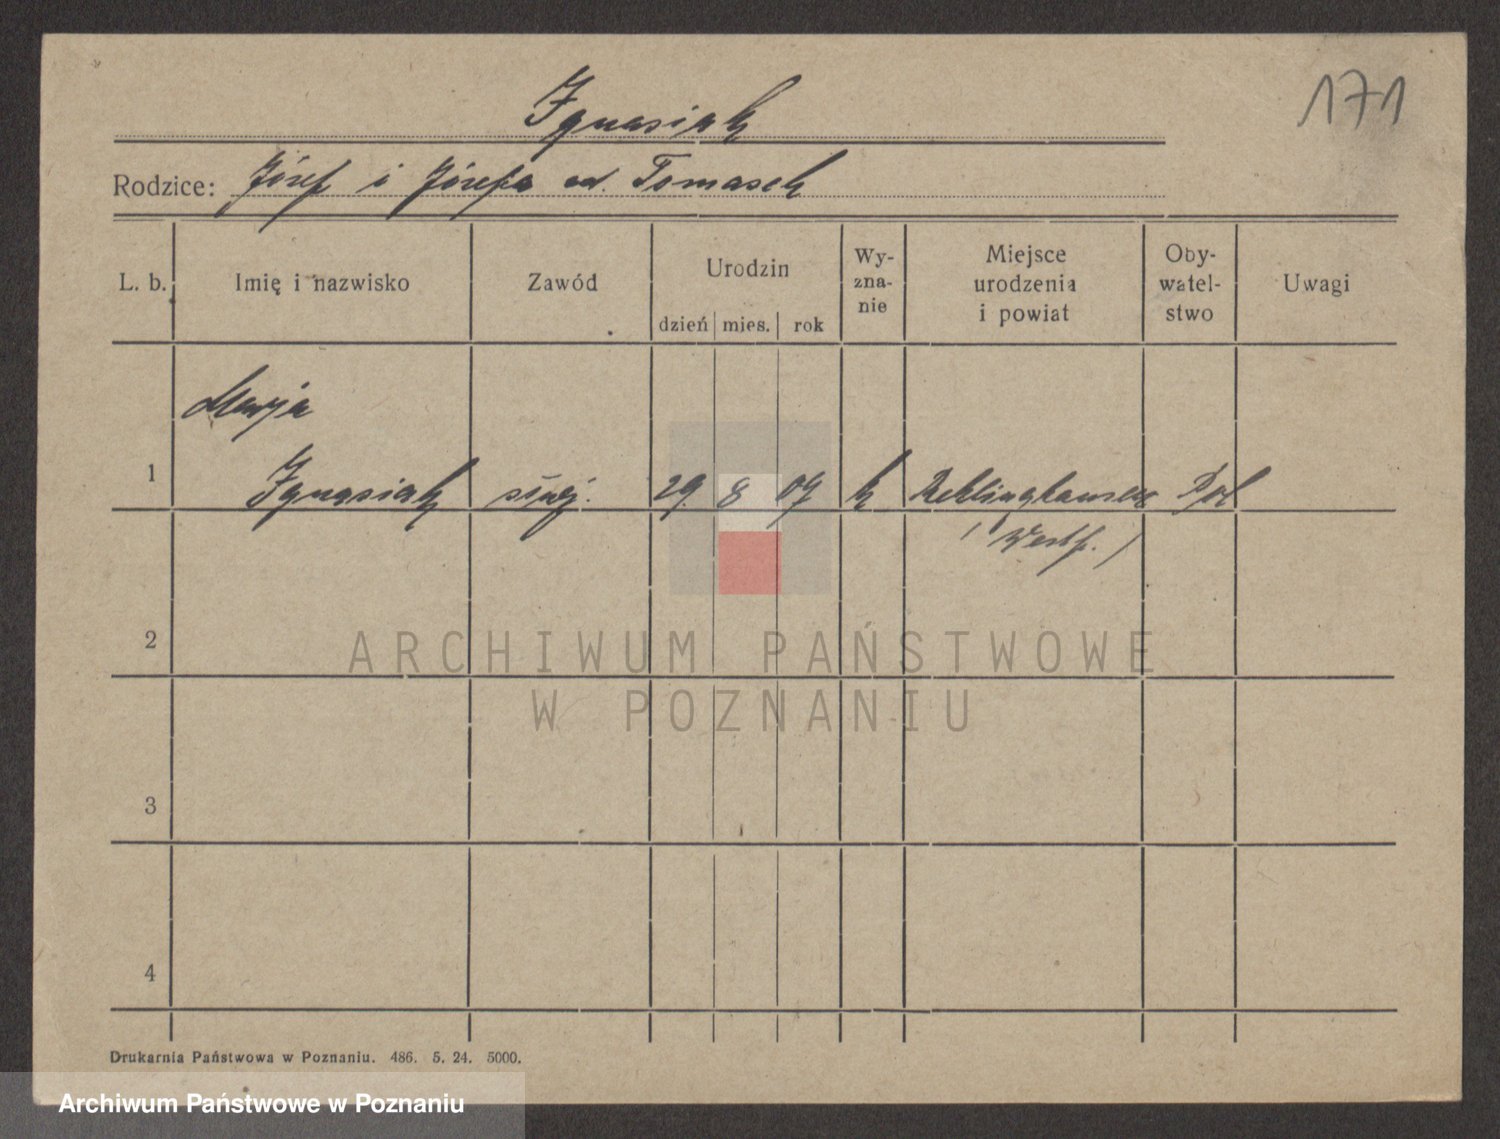 171
Ignasiak
Rodzice: Józef i Józefa od. Tomasek
L. b. Imię i nazwisko Zawód Urodzin dzień mies. rok Wy-zna-nie Miejsce urodzenia i powiat Oby-watel-stwo Uwagi
Marja
1 Ignasiak służ. 29. 8 07 k Reklinghausen Pol
( Westf. )
2
ARCHIWUM PAŃSTWOWE
W POZNANIU
3
4
Drukarnia Państwowa w Poznaniu. 486. 5. 24. 5000.
Archiwum Państwowe w Poznaniu